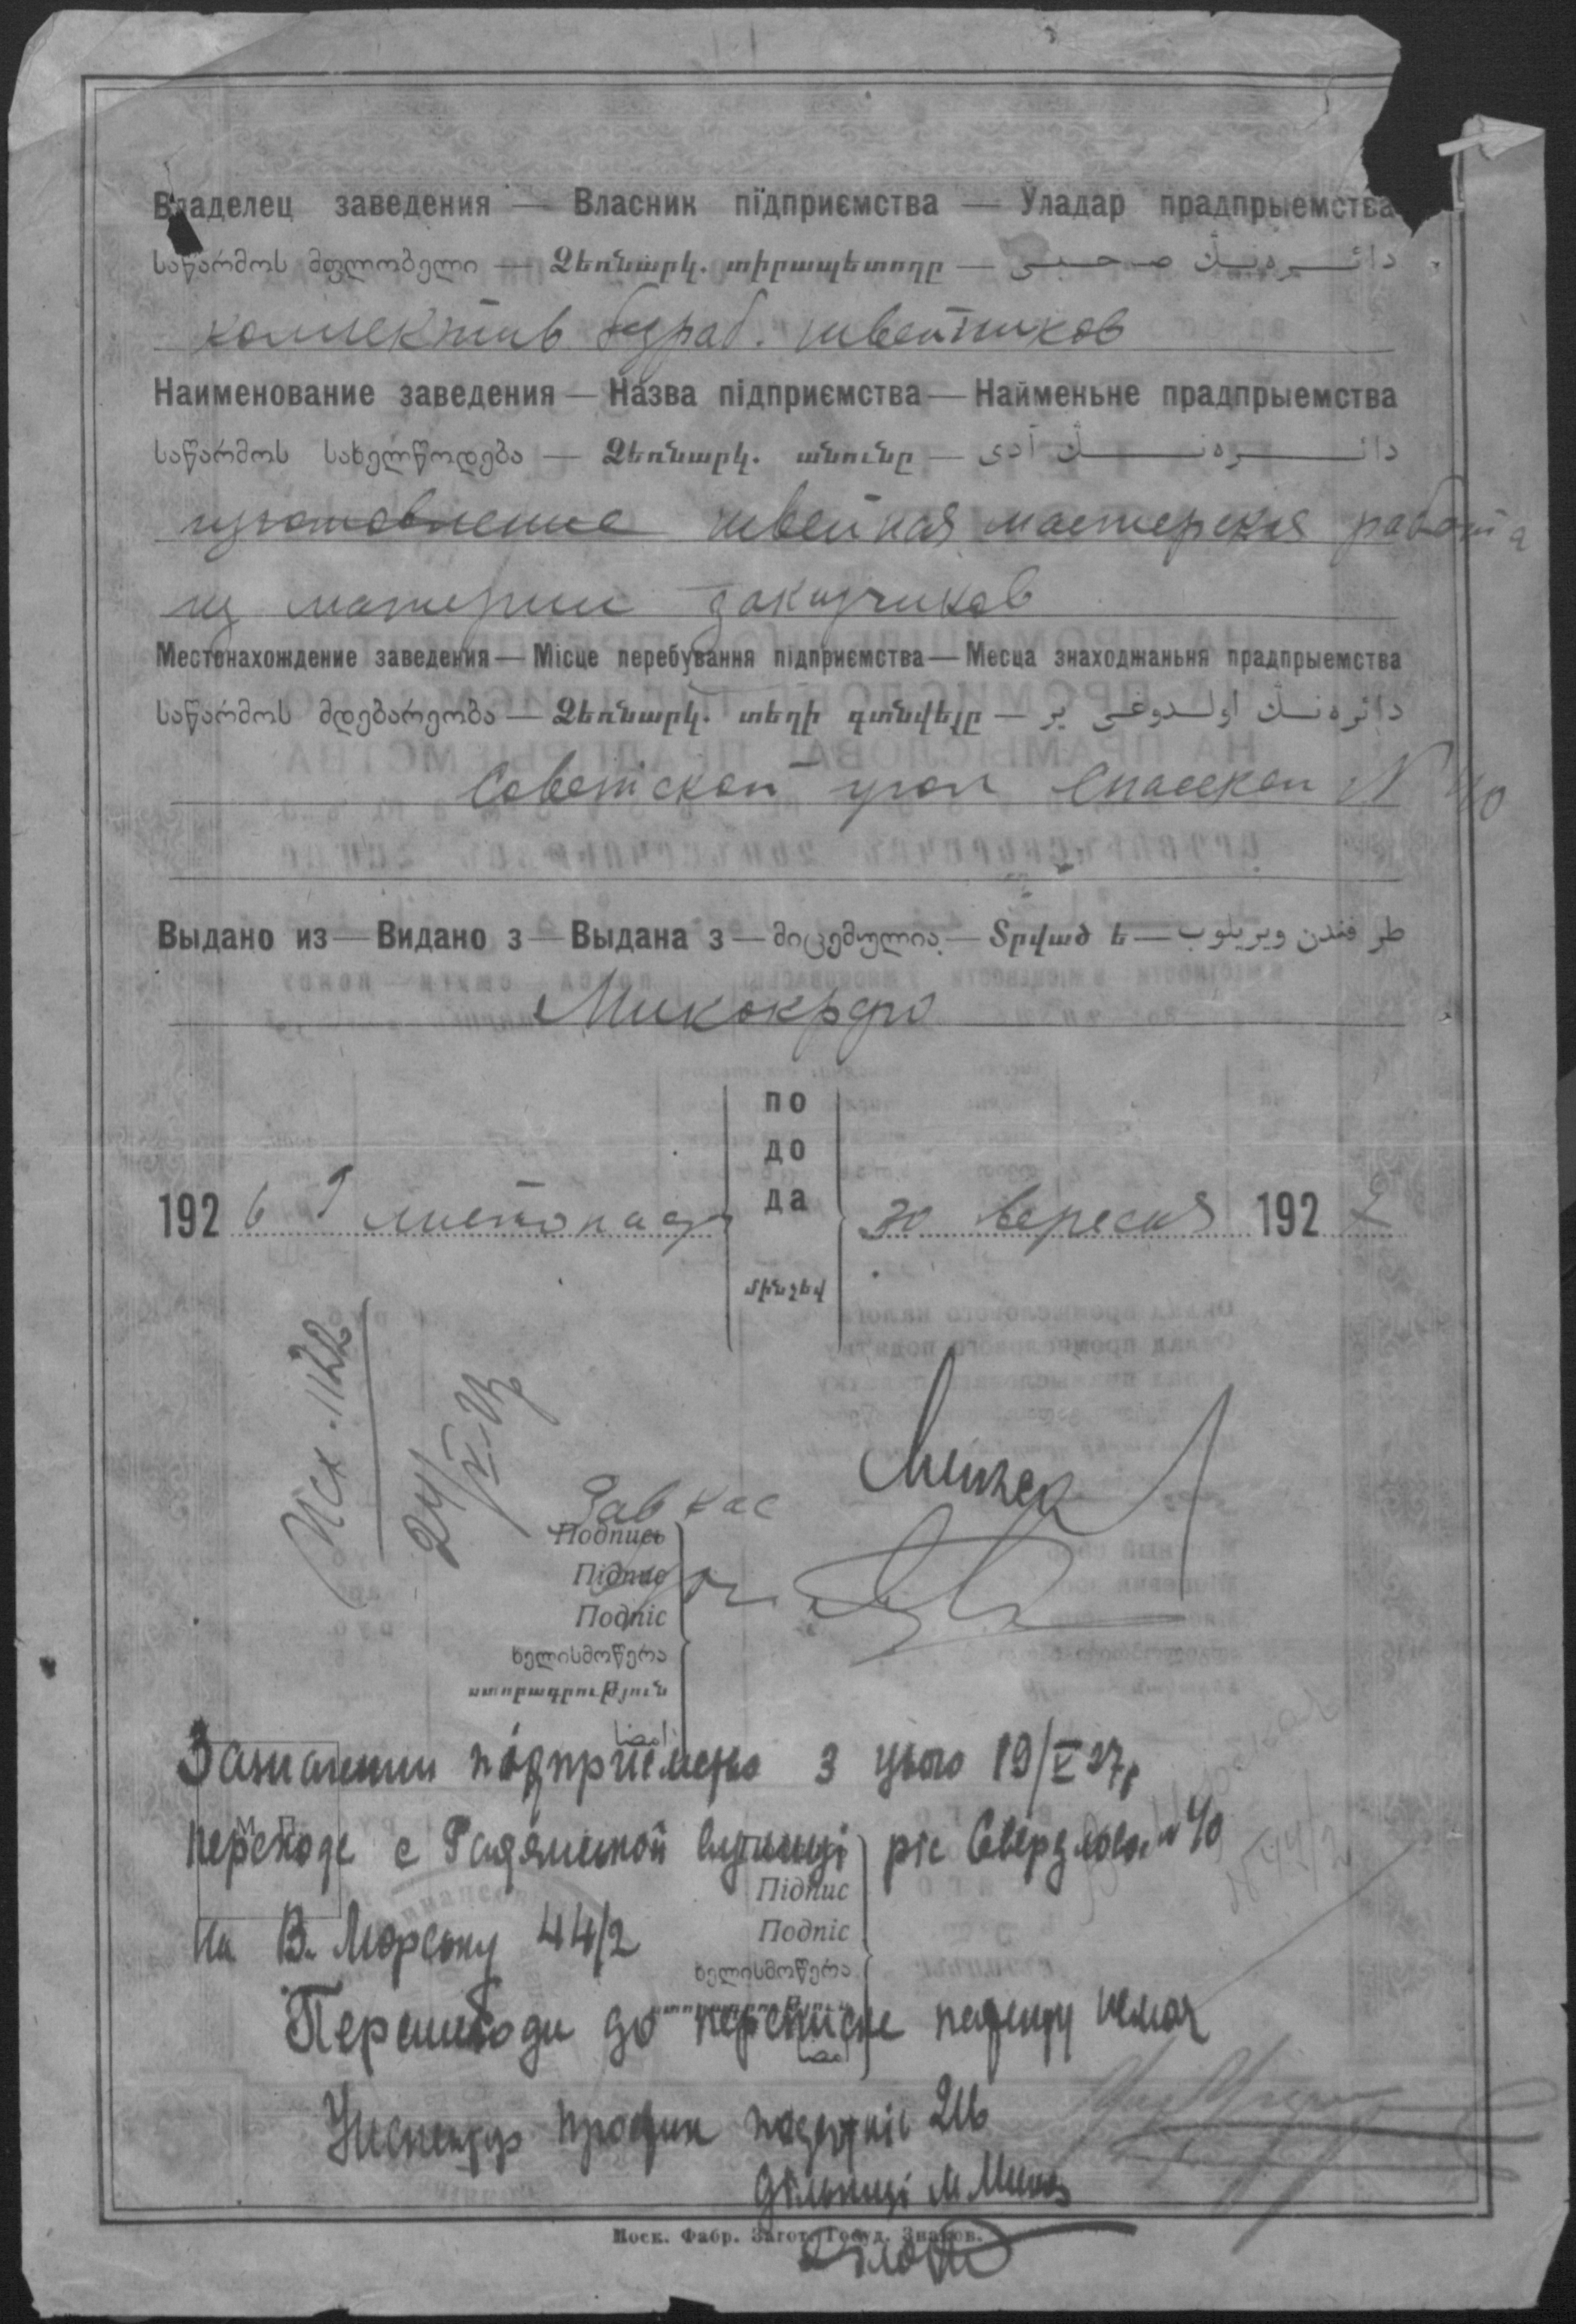 Владелец заведения — Власник підприємства — Уладар прадпрыемства
საწარმოს მფლობელი — Ձեռնարկ. տիրապետողը — دائره‌نڭ صاحبی
коллектив безраб. швейников
Наименование заведения — Назва підприємства — Найменьне прадпрыемства
საწარმოს სახელწოდება — Ձեռնարկ. անունը — دائره‌نڭ آدی
изготовление швейная мастерская работа
из материи заказчиков
Местонахождение заведения — Місце перебування підприємства — Месца знаходжаньня прадпрыемства
საწარმოს მდებარეობა — Ձեռնարկ. տեղի գտնվելը — دائره‌نڭ اولدوغی یر
Советской угол Спасской N 40
Выдано из — Видано з — Выдана з — მიცემულია — Տրված է — طرفندن ویریلوب
Микокрфо
по
до
да
1926 9 листопада 30 вересня 1927
մինչև
Исх. 1122
Зав кас
Подпись
Підпис
Подпіс
ხელისმოწერა
ստորագրություն
امضا
Зазначени підприємство з цього 19/V 27 р
переходе с Радянської вулиці ріг Свердлова N 40
Підпис
на В. Морську 44/2
Подпіс
ხელისმოწერა
Перешкоди до переписке патенту немає
امضا
Инспектор 2ів
дільниці м. Микол
N 44/2
Моск. Фабр. Загот. Госуд. Знаков.